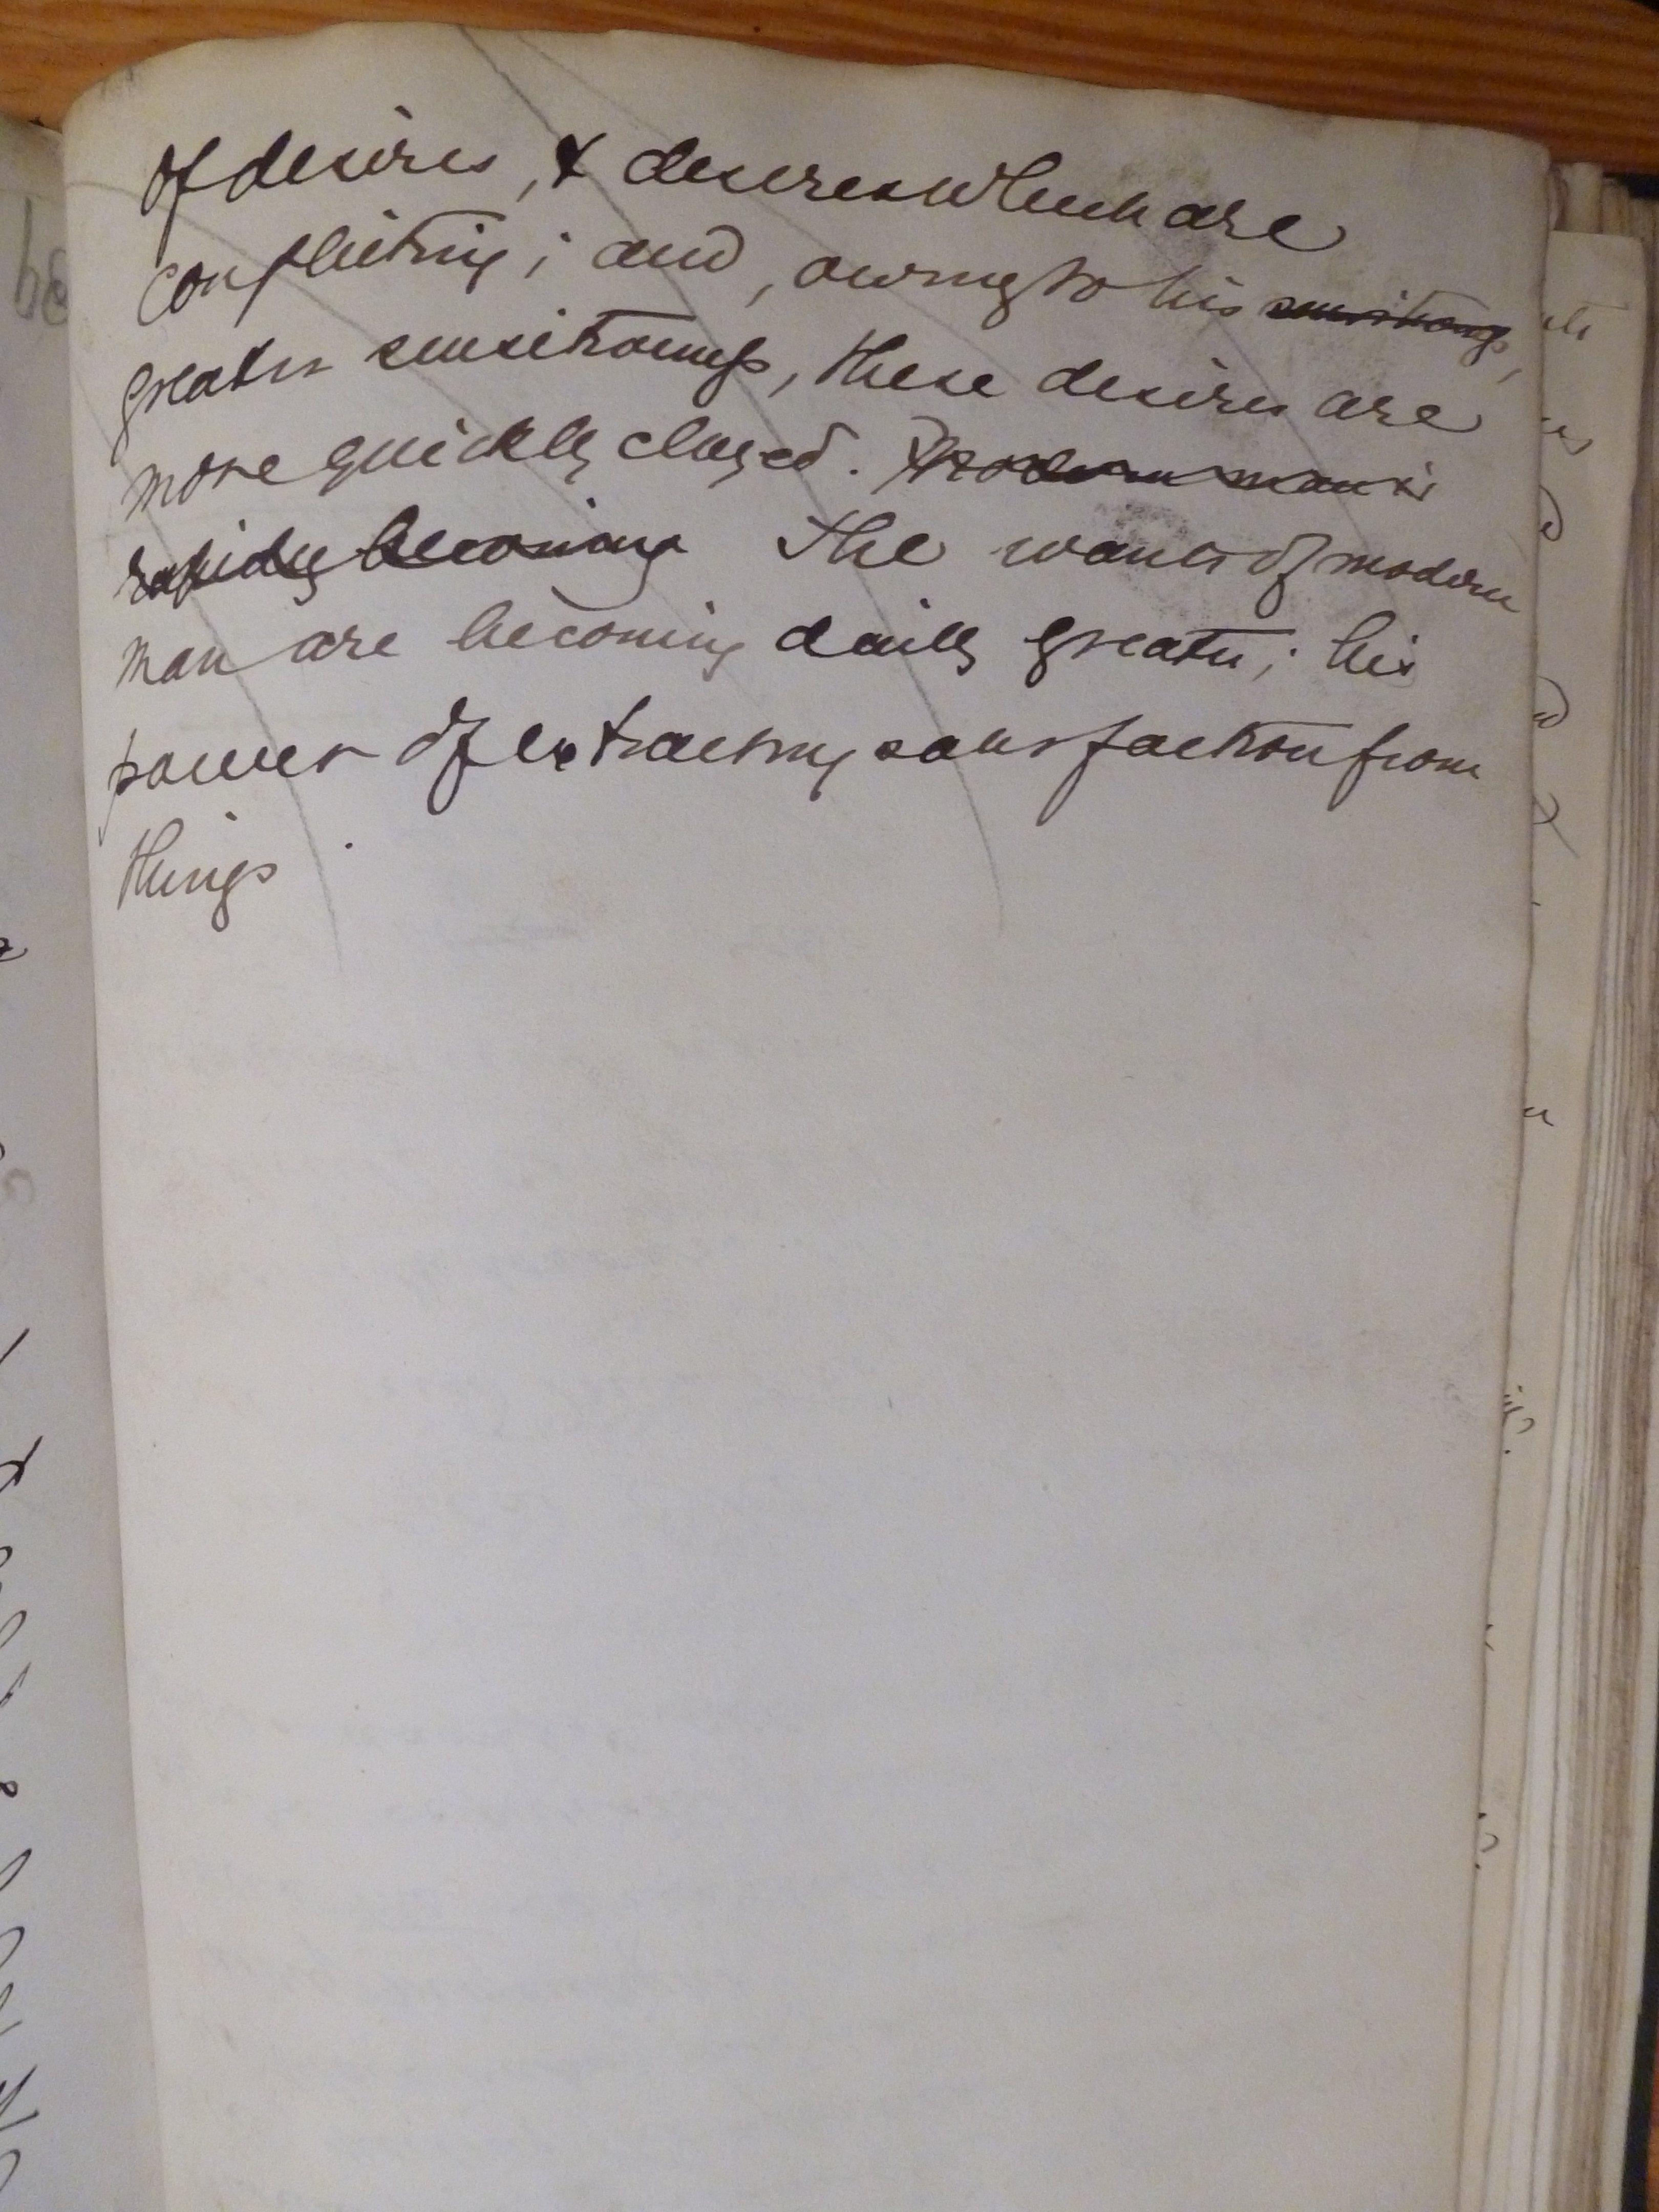 of desires, & desires which are
conflicting; and, owing to his sensitiveness,
greater sensitiveness, these desires are
more quickly cloyed. Modern man is
rapidly becoming The wants of modern
man are becoming daily greater; his
power of extracting satisfaction from
things.